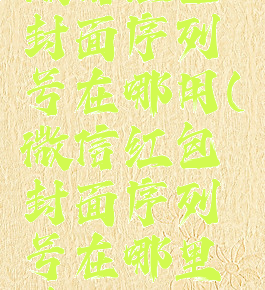 封面序列
号在哪用(
微信红包
封面序列
号在哪里